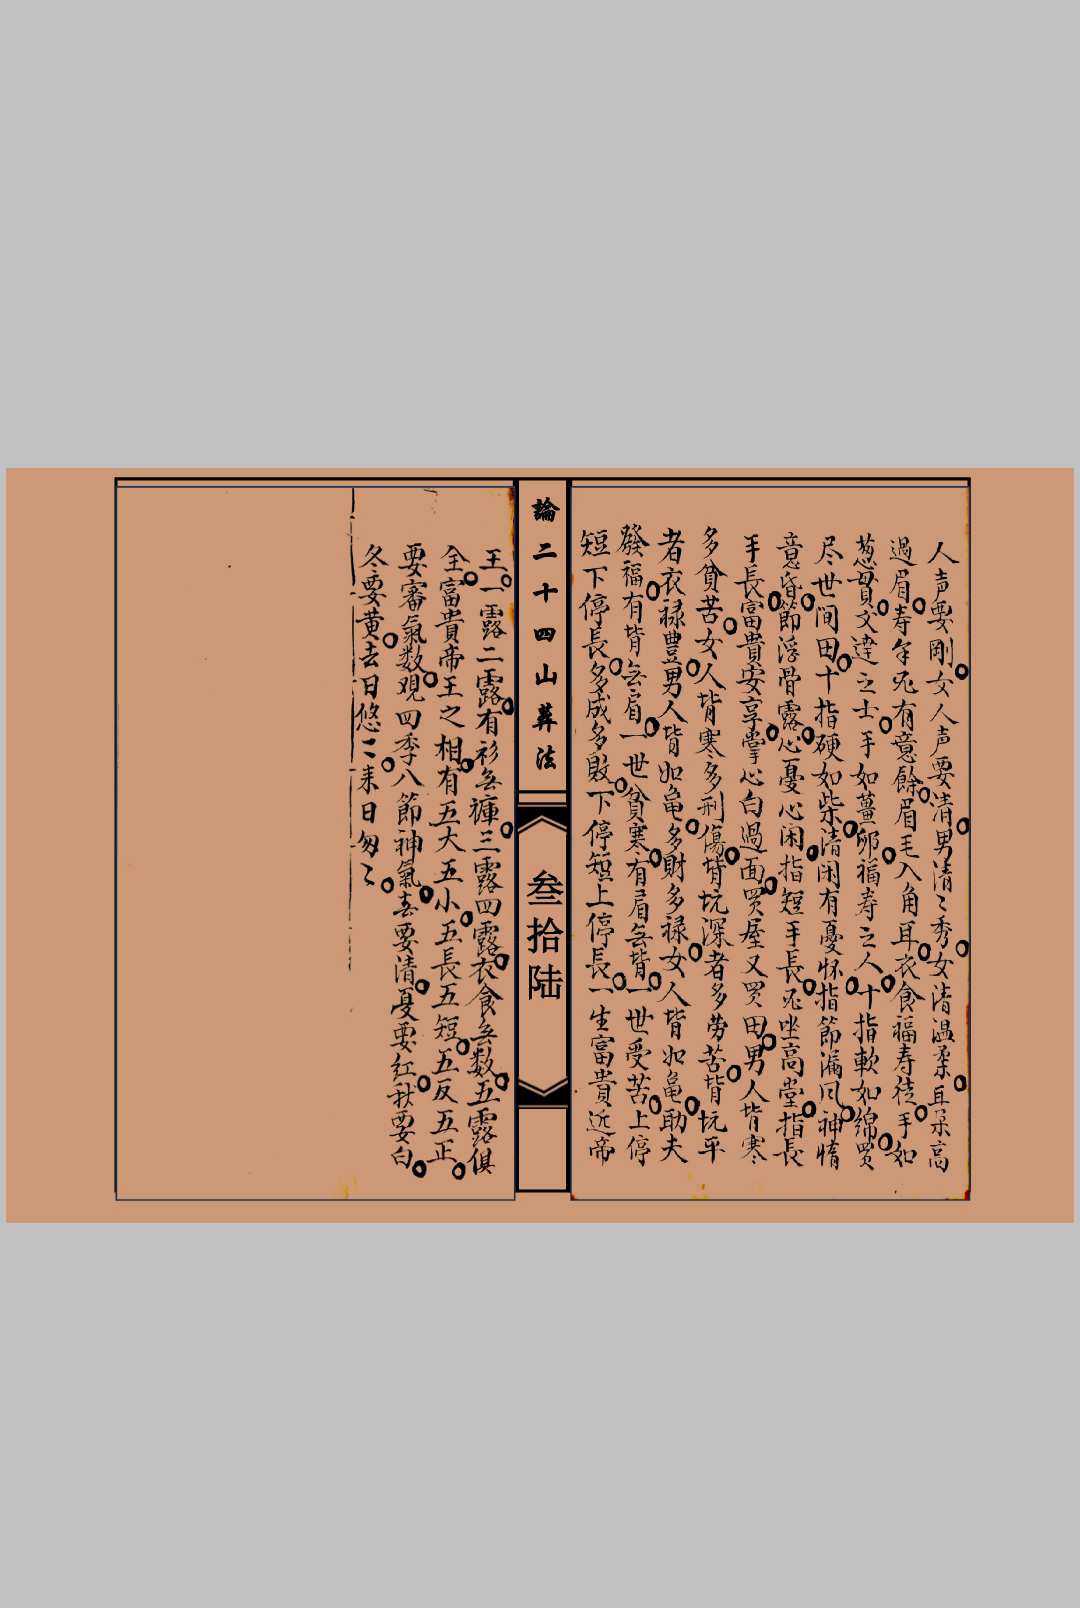 人声要剛女人声要清男清〻秀女清温柔耳朵高
過眉寿年死有意餘眉毛入角耳衣食福寿徒手如
葱貫文達之士手如薑卵福寿之人十指軟如綿買
尽世间田十指硬如柴清闲有憂怀指節漏风神惰
意昏節浮骨露心憂心闲指短手長死坐高堂指長
手長富貴安享掌心白過面買屋又買田男人背寒
多貧苦女人背寒多刑傷背坑深者多劳苦背坑平
者衣禄豊男人背如亀多財多禄女人背如亀助夫
發福有背無肩一世貧寒有肩無背一世受苦上停
短下停長多成多敗下停短上停長一生富貴近帝
論二十四山葬法
叁拾陆
王一露二露有衫無褲三露四露衣食無数五露俱
全富貴帝王之相有五大五小五長五短五反五正
要審氣数观四季八節神氣春要清夏要红秋要白
冬要黄去日悠〻来日匆〻